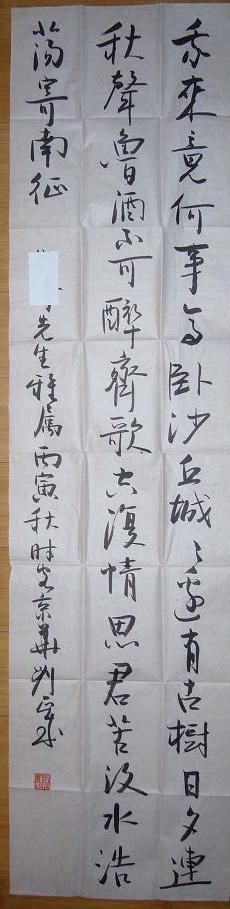 我來竟何事高臥沙丘城々邊有古樹日夕連
秋聲魯酒不可醉齊歌空復情思君若汶水浩
蕩寄南征
先生雅属丙寅秋时客京華刘